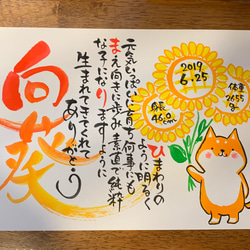 2019
6.25
体重
2655g
身長
46.0cm
ひまわりの
ように明るく
元気いっぱいに育ち何事にも
まえ向きに歩み素直で純粋
な子になりますように
生まれてきてくれて
ありがとう
向葵